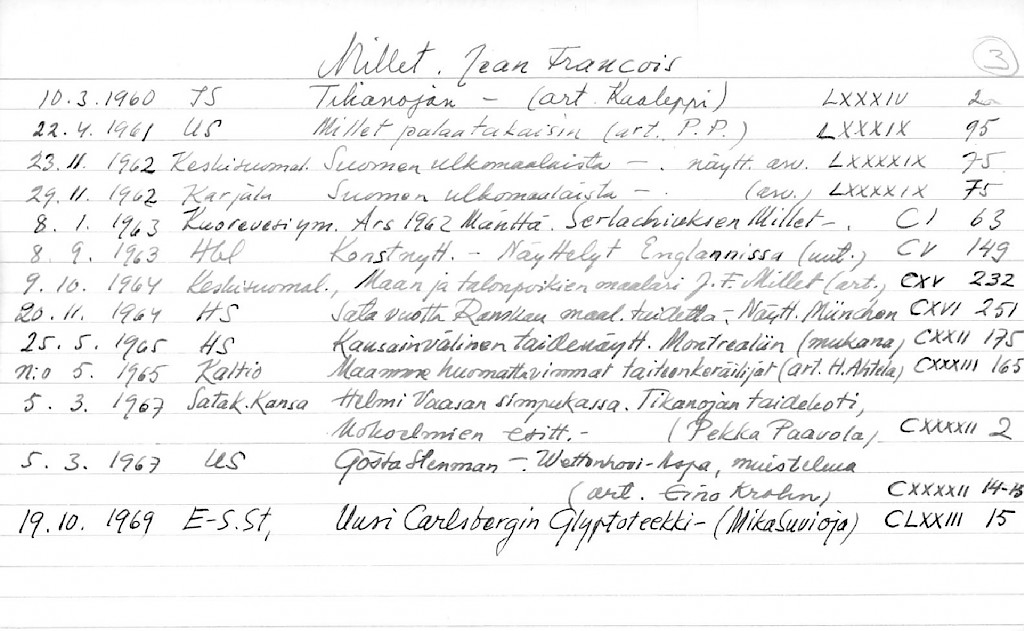 Millet. Jean Francois 3
10.3.1960 TS Tikanojan – (art. Kaaleppi) LXXXIV 2
22.4.1961 US Millet palaa takaisin (art. P.P.) LXXXIX 95
23.11.1962 Keskisuomal. Suomen ulkomaalaista –. näytt. arv. LXXXXIX 75
29.11.1962 Karjala Suomen ulkomaalaista –. (arv.) LXXXXIX 75
8.1.1963 Kuorevesi ym. Ars 1962 Mänttä. Serlachiuksen Millet –. CI 63
8.9.1963 Hbl Konstnytt. – Näyttelyt Englannissa (uut.) CV 149
9.10.1964 Keskisuomal., Maan ja talonpoikien maalari J.F. Millet (art.) CXV 232
20.11.1964 HS Sata vuotta Ranskan maal. taidetta –. Näytt. München CXVI 251
25.5.1965 HS Kansainvälinen taidenäytt. Montrealiin (mukana) CXXII 175
n:o 5. 1965 Kaltio Maamme huomattavimmat taiteenkeräilijät (art. H. Ahtela) CXXXIII 165
5.3.1967 Satak. Kansa Helmi Vaasan simpukassa. Tikanojan taidekoti,
kokoelmien esitt. – (Pekka Paavola) CXXXXII 2
5.3.1967 US Gösta Stenman –. muistelma
(art. Eino Krohn) CXXXXII 14-15
19.10.1969 E-S.St, Uusi Carlsbergin Glyptoteekki – (Mika Suvioja) CLXXIII 15